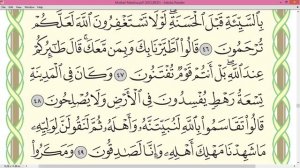 بِٱلسَّيِّئَةِ قَبْلَ ٱلْحَسَنَةِ لَوْلَا تَسْتَغْفِرُونَ ٱللَّهَ لَعَلَّكُمْ
تُرْحَمُونَ ٤٦ قَالُوا۟ ٱطَّيَّرْنَا بِكَ وَبِمَن مَّعَكَ قَالَ طَٰٓئِرُكُمْ
عِندَ ٱللَّهِ بَلْ أَنتُمْ قَوْمٌ تُفْتَنُونَ ٤٧ وَكَانَ فِى ٱلْمَدِينَةِ
تِسْعَةُ رَهْطٍ يُفْسِدُونَ فِى ٱلْأَرْضِ وَلَا يُصْلِحُونَ ٤٨
قَالُوا۟ تَقَاسَمُوا۟ بِٱللَّهِ لَنُبَيِّتَنَّهُۥ وَأَهْلَهُۥ ثُمَّ لَنَقُولَنَّ لِوَلِيِّهِۦ
مَا شَهِدْنَا مَهْلِكَ أَهْلِهِۦ وَإِنَّا لَصَٰدِقُونَ ٤٩ وَمَكَرُوا۟